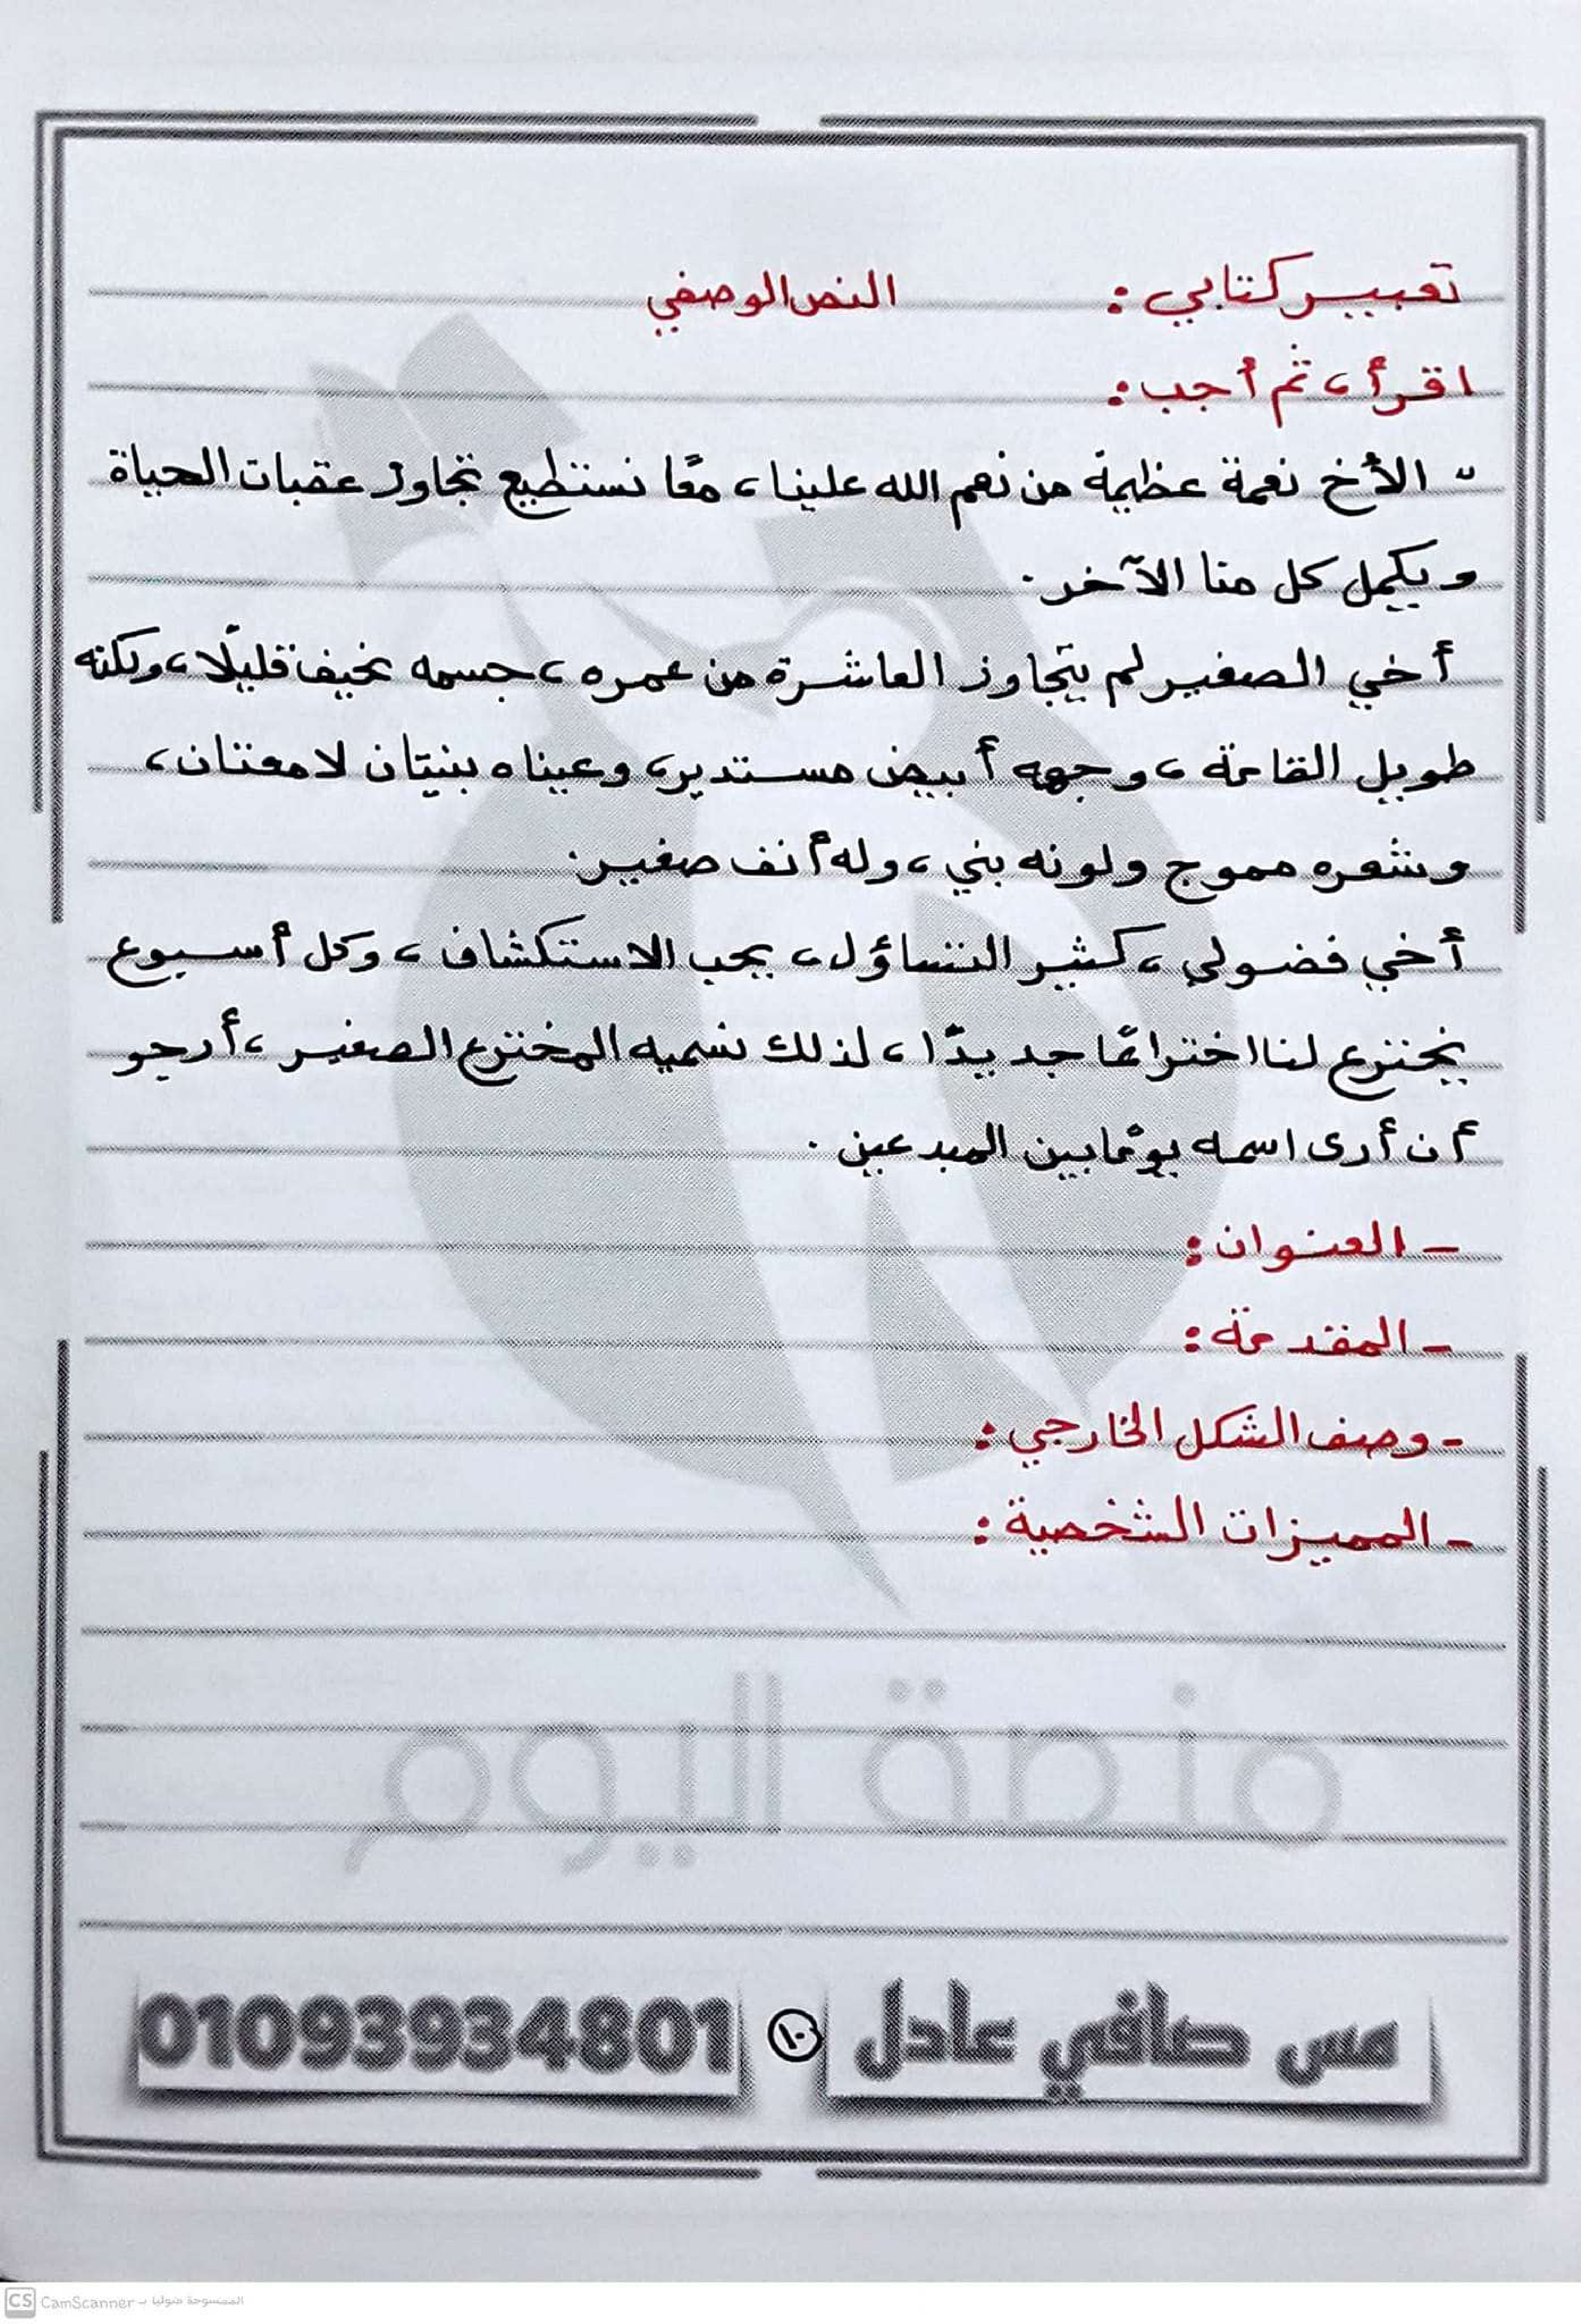 تعبير كتابي : النص الوصفي
اقرأ ، ثم أجب :
" الأخ نعمة عظيمة من نعم الله علينا ، معًا نستطيع تجاوز عقبات الحياة
ويكمل كل منا الآخر .
أخي الصغير لم يتجاوز العاشرة من عمره ، جسمه نحيف قليلًا ، ولكنه
طويل القامة ، وجهه أبيض مستدير ، وعيناه بنيتان لامعتان ،
وشعره مموج ولونه بني ، وله أنف صغير .
أخي فضولي ، كثير التساؤل ، يحب الاستكشاف ، وكل أسبوع
يخترع لنا اختراعًا جديدًا ، لذلك نسميه المخترع الصغير ، أرجو
أن أرى اسمه يومًا بين المبدعين .
- العنوان :
- المقدمة :
- وصف الشكل الخارجي :
- المميزات الشخصية :
منصة اليوم
مس صافي عادل ١٠ 01093934801
CS CamScanner الممسوحة ضوئيا بـ